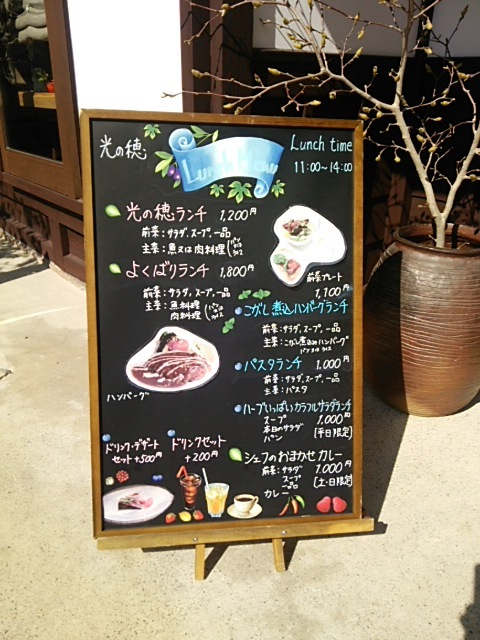 光の穂
Lunch Menu
Lunch time
11:00~14:00
光の穂ランチ 1,200円
前菜:サラダ、スープ、一品
主菜:魚又は肉料理(パン又はライス
よくばりランチ 1,800円
前菜:サラダ、スープ、一品
主菜:魚料理
肉料理(パン又はライス
ハンバーグ
前菜プレート
1,100円
こがし煮込ハンバーグランチ
前菜:サラダ、スープ、一品
主菜:こがし煮込ハンバーグ
パン又はライス
パスタランチ 1,000円
前菜:サラダ、スープ、一品
主菜:パスタ
ハーブいっぱいカラフルサラダランチ
スープ 1,000円
本日のサラダ (平日限定)
パン
シェフのおまかせカレー
前菜:サラダ 1,000円
スープ (土・日限定)
一品
カレー
ドリンク・デザート
セット+500円
ドリンクセット
+200円